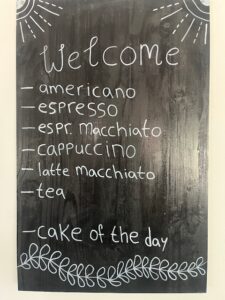 Welcome
- americano
- espresso
- espr. macchiato
- cappuccino
- latte macchiato
- tea
- cake of the day